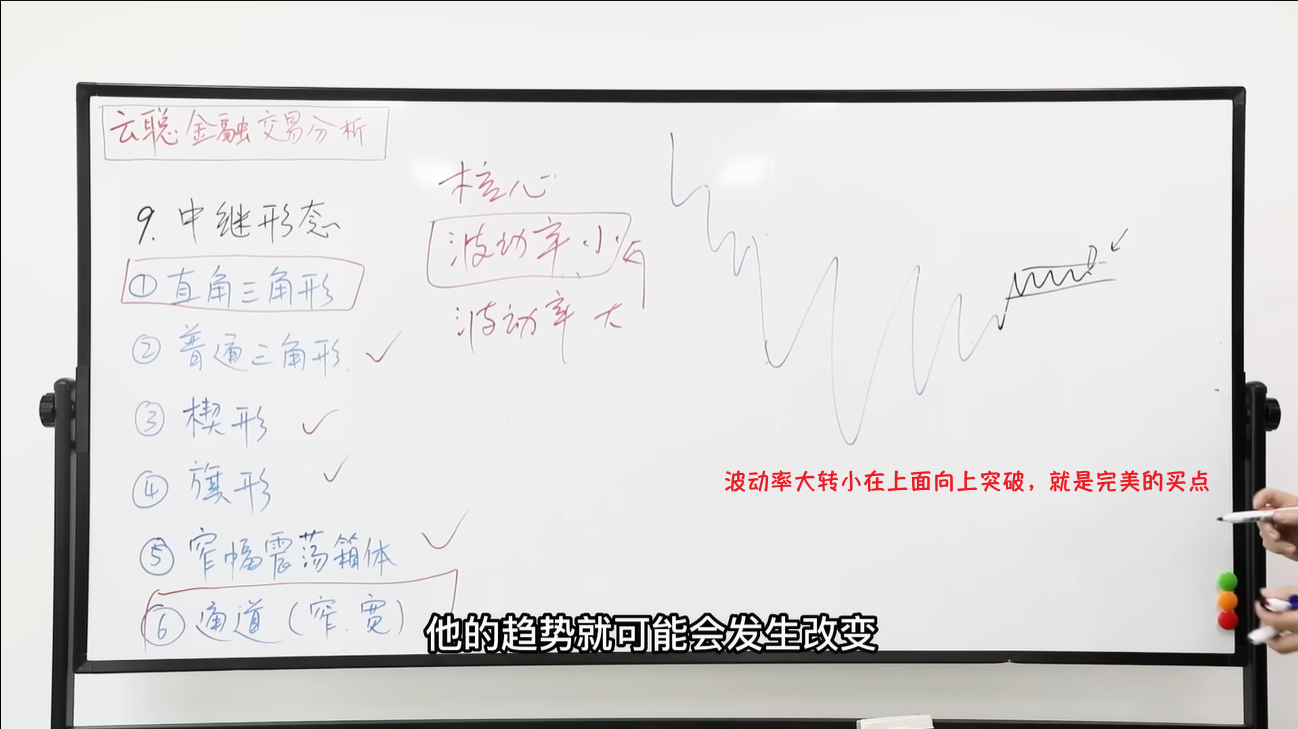 云聪金融交易分析
9. 中继形态
① 直角三角形
② 普通三角形
③ 楔形
④ 旗形
⑤ 窄幅震荡箱体
⑥ 通道(窄.宽)
核心
波动率小
波动率大
波动率大转小在上面向上突破，就是完美的买点
他的趋势就可能会发生改变